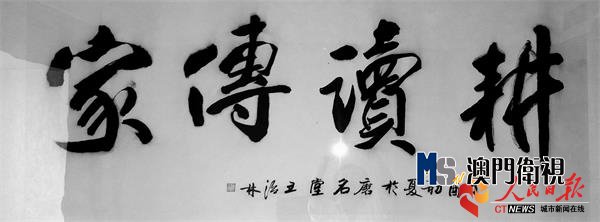 耕讀傳家
酉初夏於石堂王治林
MS 澳門衛視
人民日报
CTNEWS 城市新闻在线